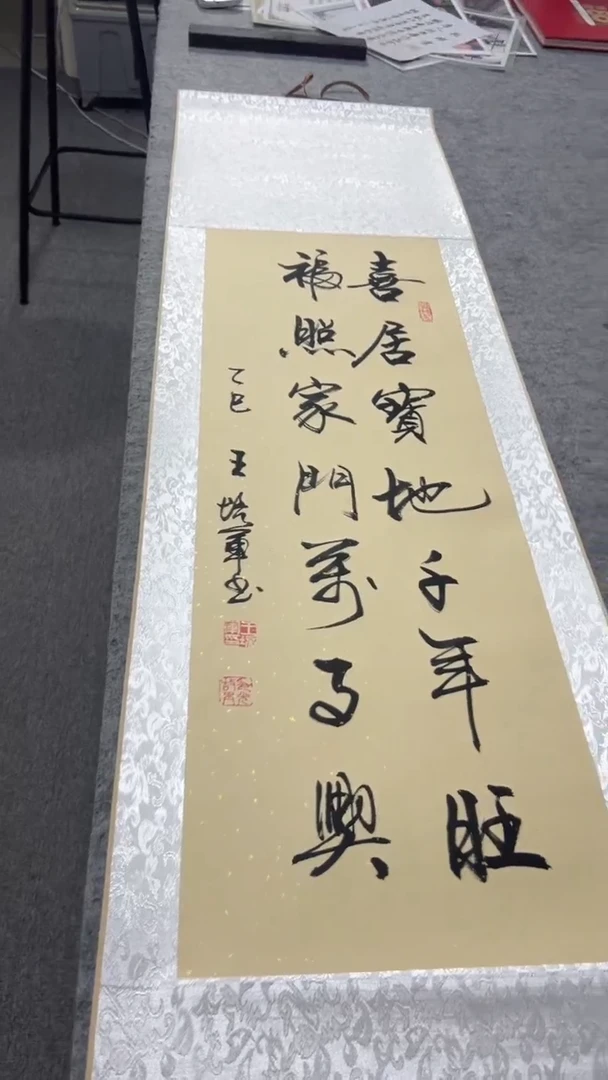 喜居寳地千年旺
福照家門萬事興
乙巳 王培軍书